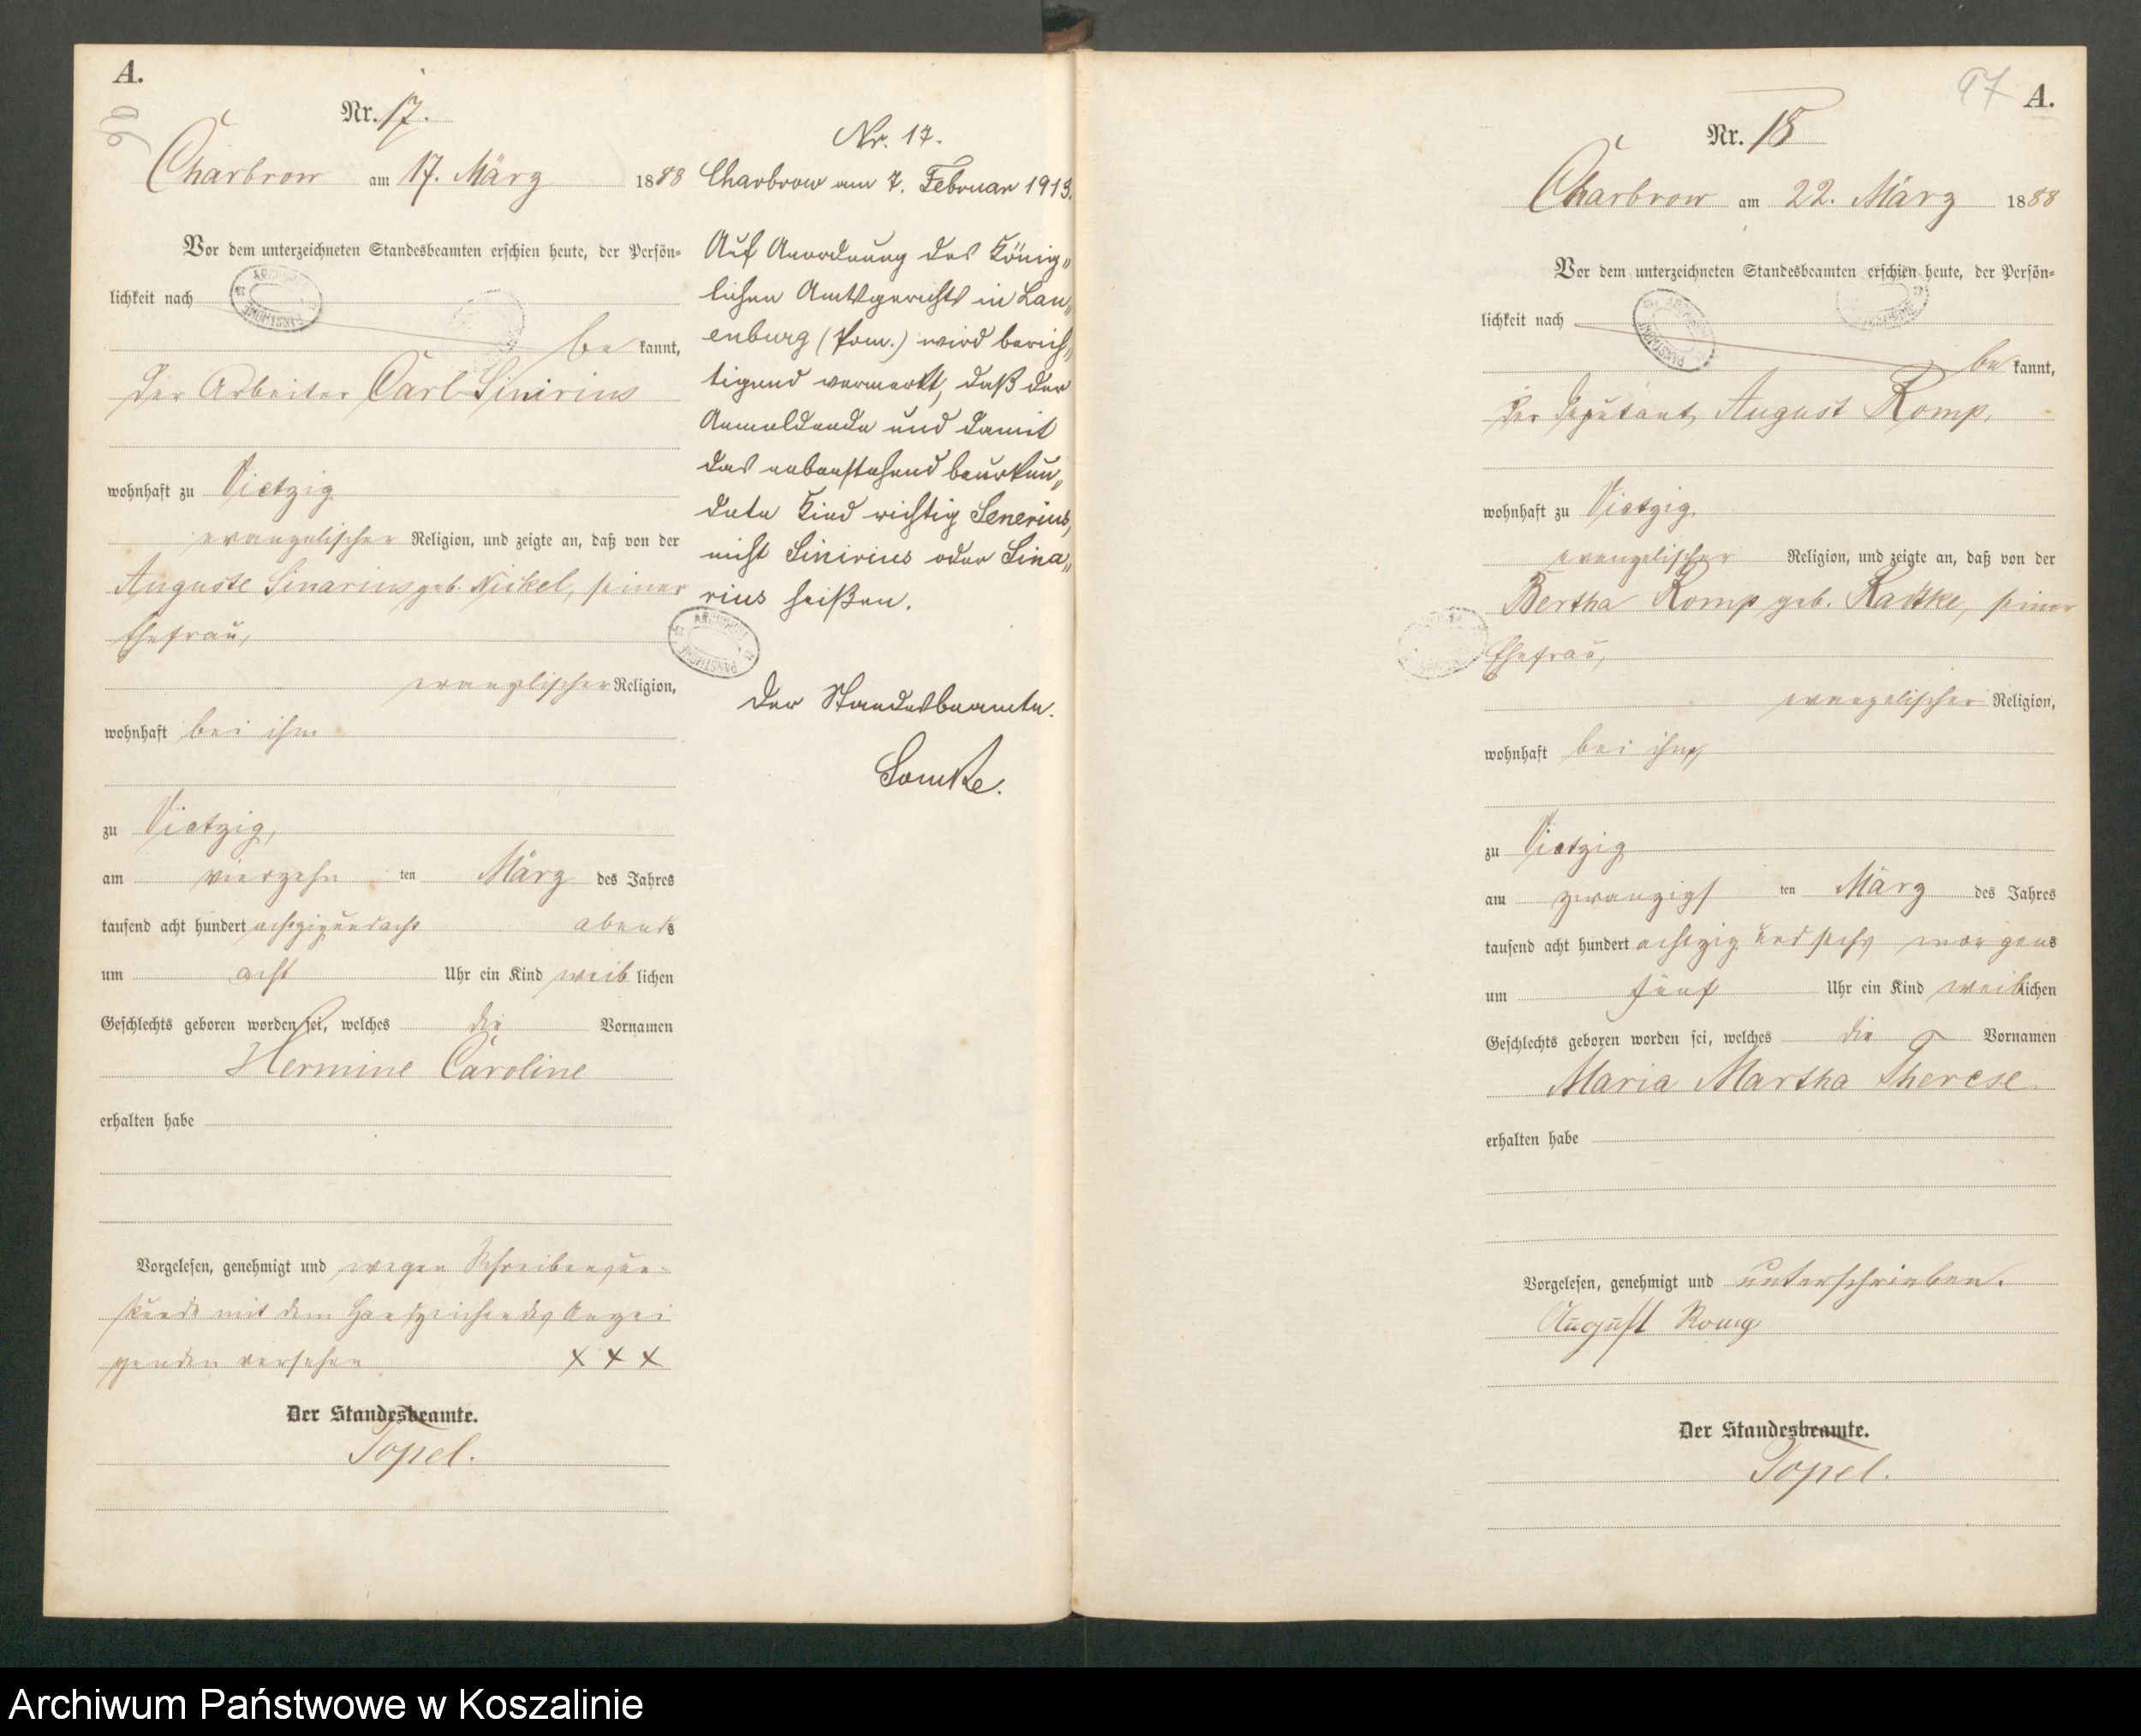 A.
Nr. 17.
Charbrow am 17. März 1888
Vor dem unterzeichneten Standesbeamten erschien heute, der Persön=
lichkeit nach
be kannt,
der Arbeiter Carl Sinirius
wohnhaft zu Vietzig
evangelischer Religion, und zeigte an, daß von der
Auguste Sinarius geb. Nickel, seiner
Ehefrau,
evangelischer Religion,
wohnhaft bei ihm
zu Vietzig,
am vierzehn ten März des Jahres
tausend acht hundert achtzigundacht abends
um acht Uhr ein Kind weiblichen
Geschlechts geboren worden sei, welches die Vornamen
Hermine Caroline
erhalten habe
Vorgelesen, genehmigt und wegen Schreibensun-
kunde mit dem Handzeichen des Anzei
genden versehen XXX
Der Standesbeamte.
Topel.
Nr. 17.
Charbrow am 7. Februar 1913.
Auf Anordnung des König„
lichen Amtsgerichts in Lau„
enburg (Pom.) wird berich„
tigend vermerkt, daß der
Anmeldende und damit
das nebenstehend beurkun„
dete Kind richtig Senerius,
nicht Sinirius oder Sina„
rius heißen.
Der Standesbeamte.
97 A.
Nr. 18
Charbrow am 22. März 1888
Vor dem unterzeichneten Standesbeamten erschien heute, der Persön=
lichkeit nach
be kannt,
der Deputant August Romp,
wohnhaft zu Vietzig.
evangelischer Religion, und zeigte an, daß von der
Bertha Romp geb. Radtke, seiner
Ehefrau,
evangelischer Religion,
wohnhaft bei ihm,
zu Vietzig
am zwanzigs ten März des Jahres
tausend acht hundert achtzig und sechs morgens
um fünf Uhr ein Kind weiblichen
Geschlechts geboren worden sei, welches die Vornamen
Maria Martha Therese
erhalten habe
Vorgelesen, genehmigt und unterschrieben.
August Romp
Der Standesbeamte.
Topel.
Archiwum Państwowe w Koszalinie